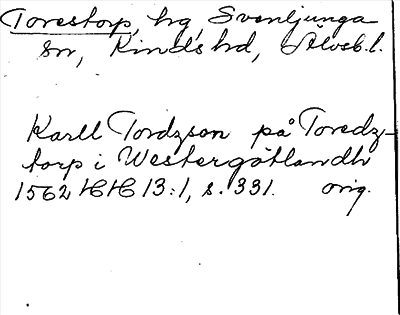 Torestorp, hg, Svenljunga
sn, Kinds hd, Älvsb. l.
Karll Tordzson på Toredz-
torp i Westergötlandh
1562 HH 13:1, s. 331. orig.